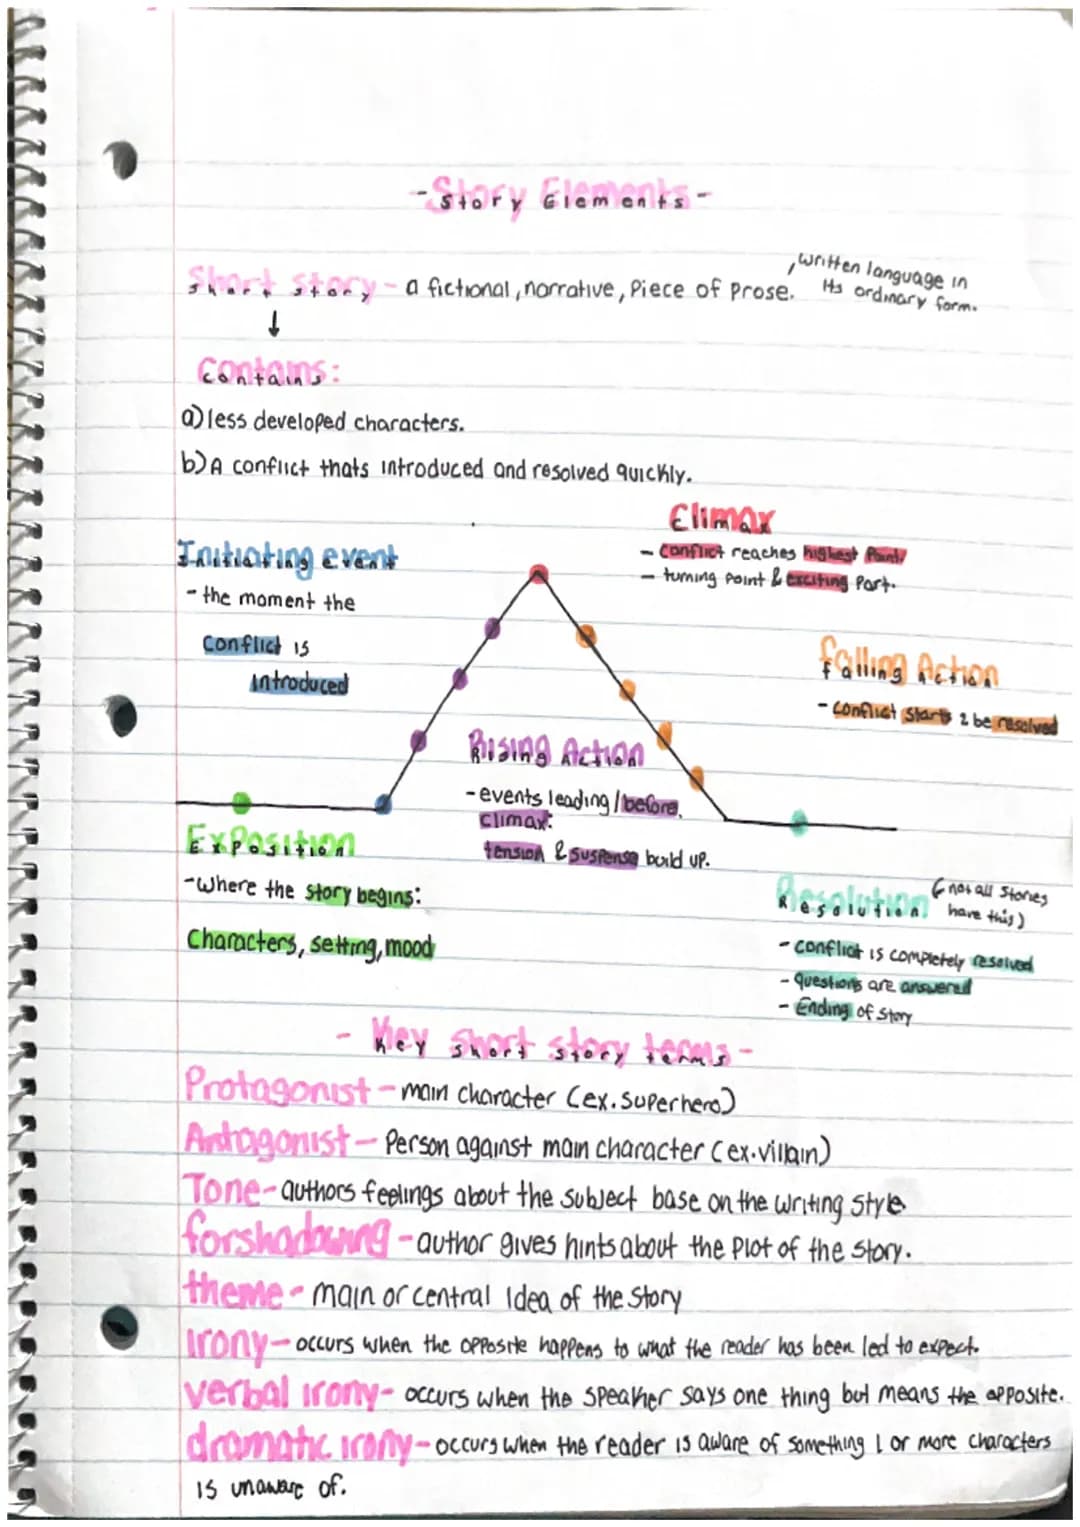 - Story Elements -
Short story - a fictional, narrative, Piece of Prose.
, written language in
its ordinary form.
↓
Contains:
a) less developed characters.
b) A conflict thats introduced and resolved quickly.
Climax
- Conflict reaches highest Point,
- turning point & exciting Part.
Initiating event
- the moment the
Conflict is
introduced
falling Action
- conflict starts 2 be resolved
Rising Action
- events leading / before,
climax:
tension & suspense build up.
Exposition
- Where the story begins:
Characters, setting, mood
Resolution (not all stories
have this)
- conflict is completely resolved
- questions are answered
- Ending of story
- Key short story terms -
Protagonist - main character (ex. superhero)
Antagonist - Person against main character (ex. villain)
Tone - authors feelings about the subject base on the writing style
forshadowing - author gives hints about the Plot of the story.
theme - main or central idea of the story
Irony - occurs when the opposite happens to what the reader has been led to expect.
verbal irony - occurs when the speaker says one thing but means the opposite.
dramatic irony - occurs when the reader is aware of something 1 or more characters
is unaware of.